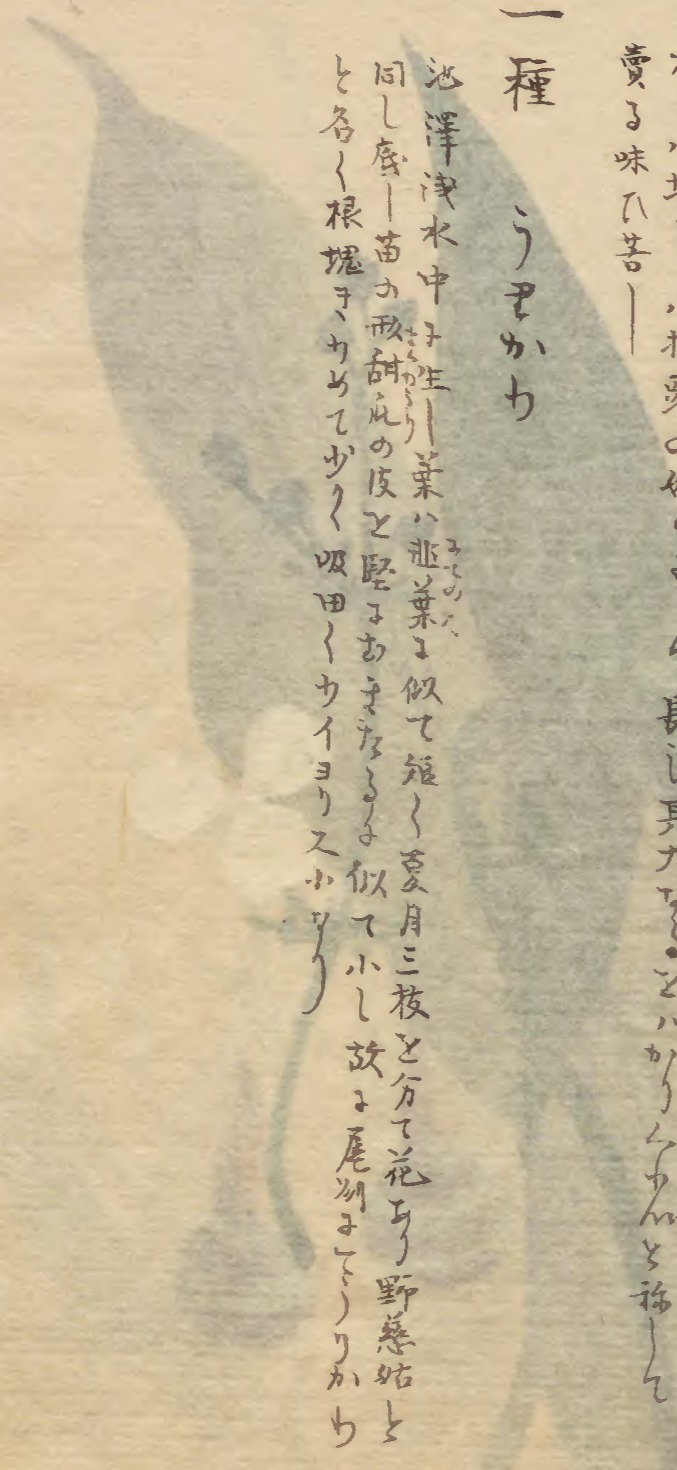 長し其大なるをハかりくわゐと称して
賣る味ひ苦し
一種 うりかわ
池澤浅水中に生し葉ハ韮葉に似て短く夏月三枝を分て花あり野慈姑と
同し 苗の形甜瓜の皮を堅にむきたるに似て小し故に尾州にてうりかわ
と名く根塊きわめて少く吸田くわイヨリ又小なり